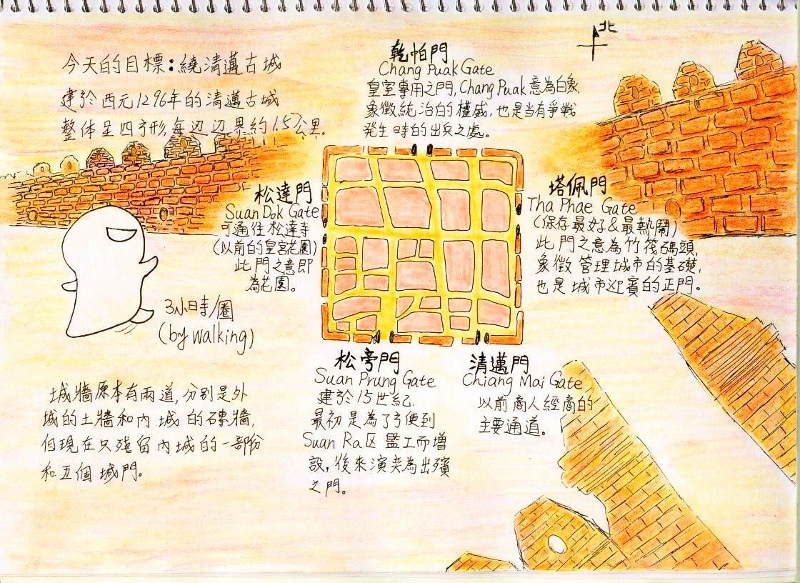 北
今天的目標：繞清邁古城
建於西元1296年的清邁古城
整体呈四方形,每辺辺界約1.5公里.
乾怕門
Chang Puak Gate
皇室專用之門,Chang Puak意為白象
象徵統治的權威,也是当有爭戰
發生時的出兵之處。
松達門
Suan Dok Gate
可通往松達寺
(以前的皇宮花園)
此門之意即
為花園。
塔佩門
Tha Phae Gate
(保存最好&最熱鬧)
此門之意為竹筏碼頭,
象徵管理城市的基礎,
也是城市迎賓的正門。
3小時/圈
(by walking)
松旁門
Suan Prung Gate
建於15世紀.
最初是為了方便到
Suan Ra区監工而增
設,後來演变為出殯
之門。
清邁門
Chiang Mai Gate
以前商人經商的
主要通道。
城牆原本有兩道,分別是外
城的土牆和內城的磚牆,
但現在只残留內城的一部份
和五個城門。